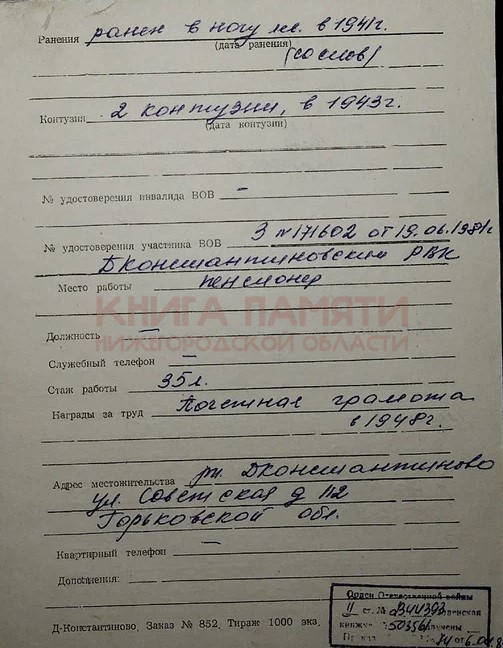 Ранения ранен в ногу ле. в 1941г.
(дата ранения)
(со слов)
Контузия 2 контузии, в 1943г.
(дата контузии)
№ удостоверения инвалида ВОВ —
№ удостоверения участника ВОВ З №171602 от 19.06.1981г
Дконстантиновским РВК
Место работы пенсионер
КНИГА ПАМЯТИ
НИЖЕГОРОДСКОЙ ОБЛАСТИ
Должность —
Служебный телефон —
Стаж работы 35л.
Награды за труд Почетная грамота
в 1948г.
Адрес местожительства рп. Дконстантиново
ул. Советская д 112
Горьковской обл.
Квартирный телефон —
Дополнения:
Орден Отечественной войны
II ст. №
Д-Константиново, Заказ № 852, Тираж 1000 экз.